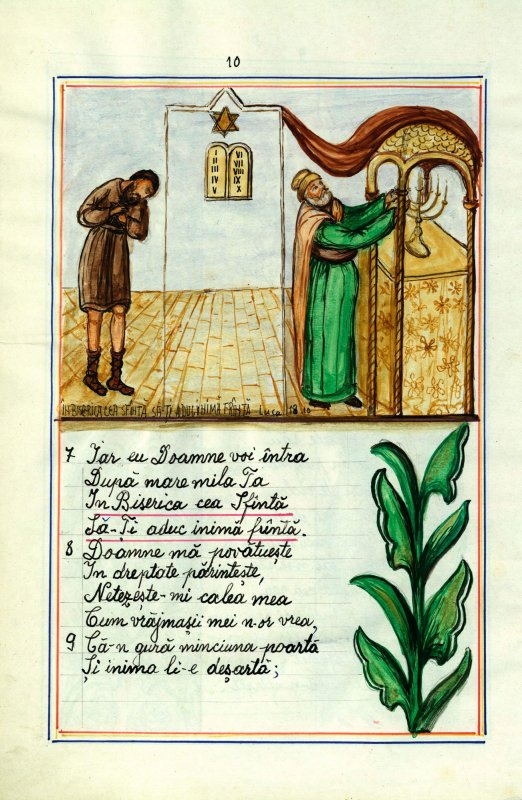 10
I II III IV V
VI VII VIII IX X
ÎN BISERICA CEA SFÎNTĂ SĂ-ȚI ADUC INIMĂ FRÎNTĂ Luca 18 10
7 Iar eu Doamne voi întra
După mare mila Ta
In Biserica cea Sfîntă
Să-Ți aduc inimă frîntă.
8 Doamne mă povătuește
In dreptate părintește,
Netezește-mi calea mea
Cum vrăjmașii mei n-or vrea,
9 Că-n gură minciuna poartă
Și inima li-e deșartă;